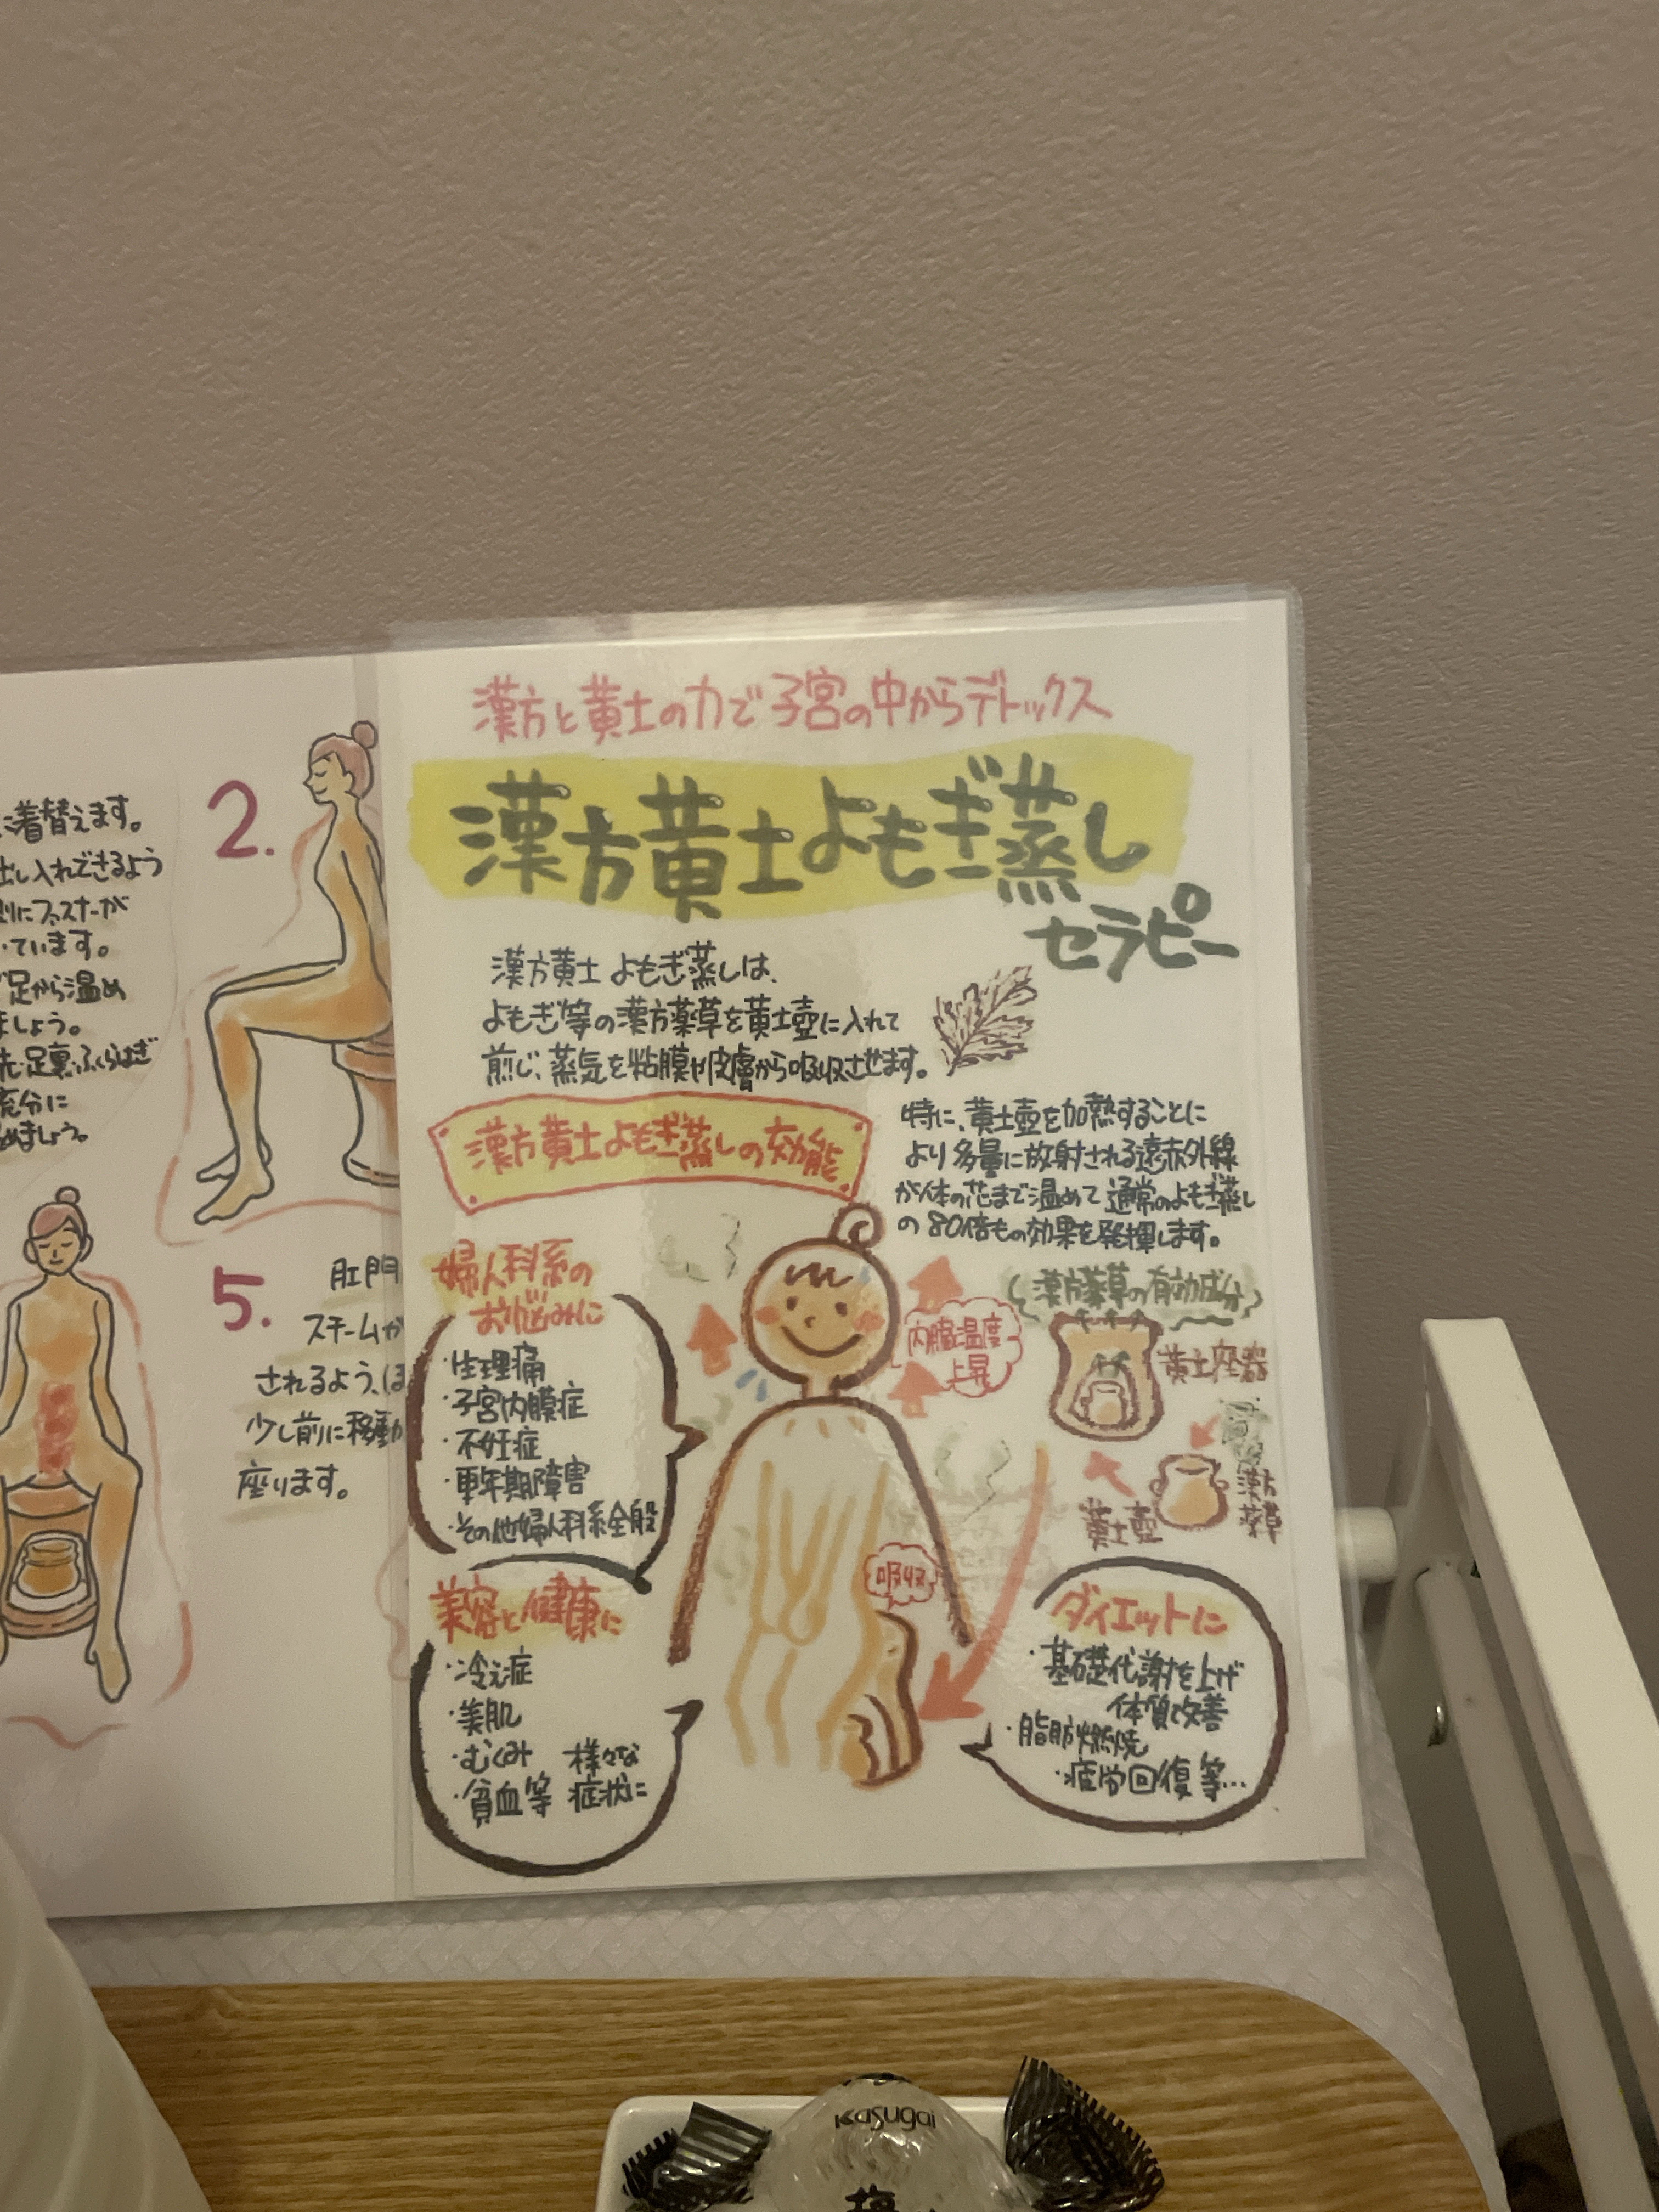 に着替えます。
出し入れできるよう
側にファスナーが
ています。
足から温め
ましょう。
先・足裏・ふくらはぎ
充分に
めましょう。
2.
5.
肛門
スチームが
されるよう、ほ
少し前に移動
座ります。
漢方と黄土の力で子宮の中からデトックス
漢方黄土よもぎ蒸し
セラピー
漢方黄土よもぎ蒸しは、
よもぎ等の漢方薬草を黄土壺に入れて
煎じ、蒸気を粘膜や皮膚から吸収させます。
特に、黄土壺を加熱することに
より多量に放射される遠赤外線
が体の芯まで温めて通常のよもぎ蒸し
の80倍もの効果を発揮します。
漢方黄土よもぎ蒸しの効能
婦人科系の
お悩みに
・生理痛
・子宮内膜症
・不妊症
・更年期障害
・その他婦人科系全般
内臓温度
上昇
漢方薬草の有効成分
黄土座器
漢方
薬草
黄土壺
吸収
美容と健康に
・冷え症
・美肌
・むくみ 様々な
・貧血等 症状に
ダイエットに
・基礎代謝を上げ
体質改善
・脂肪燃焼
・疲労回復 等…
Kasugai
塩